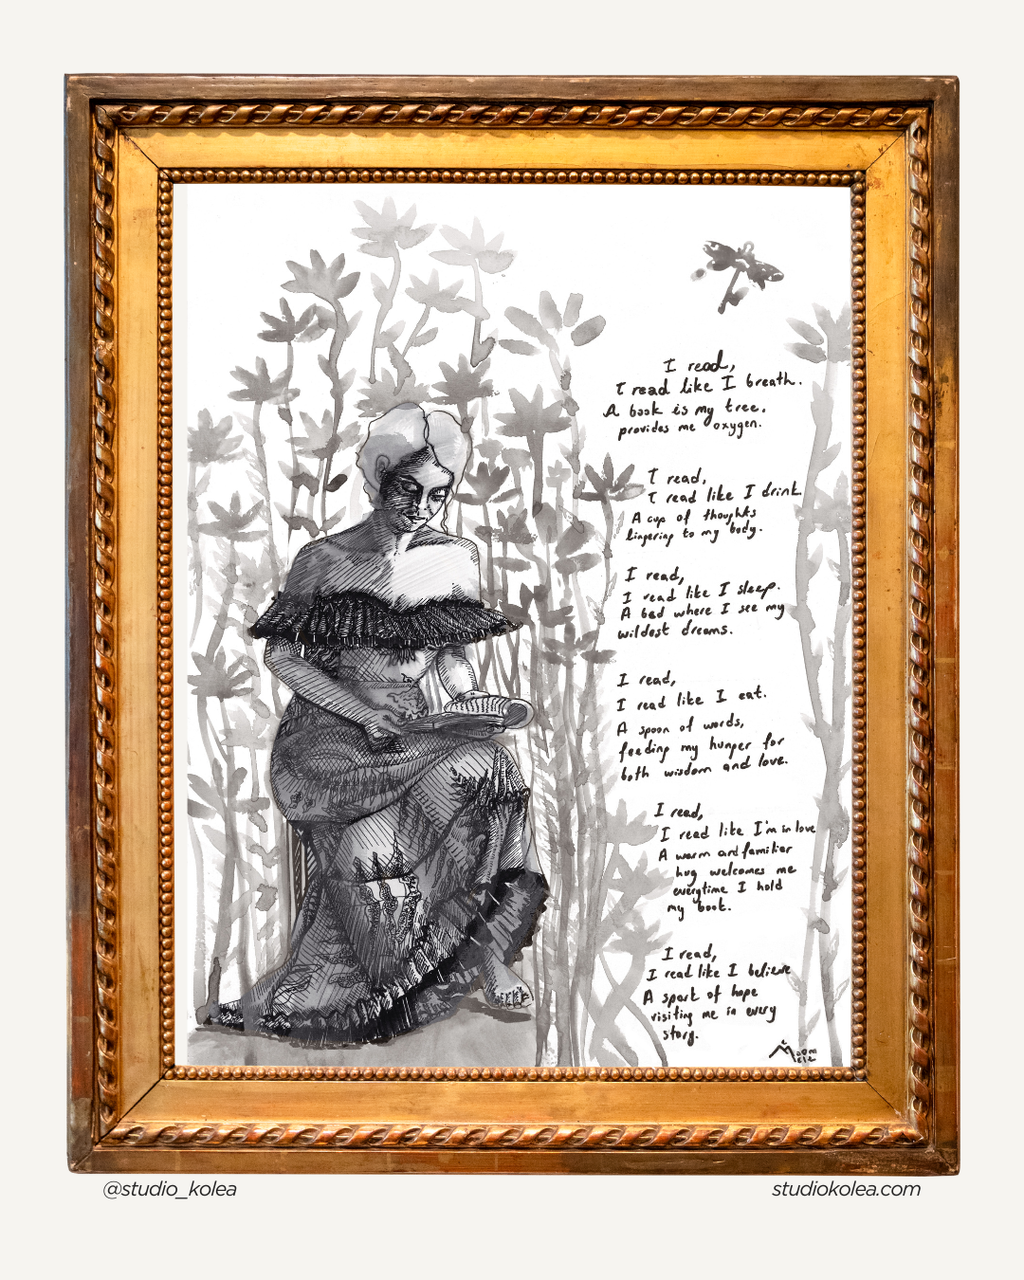 I read,
I read like I breath.
A book is my tree.
provides me oxygen.
I read,
I read like I drink
A cup of thoughts
lingering to my body.
I read,
I read like I sleep.
A bed where I see my
wildest dreams.
I read,
I read like I eat.
A spoon of words,
feeding my hunger for
both wisdom and love.
I read,
I read like I'm in love
A warm and familiar
hug welcomes me
everytime I hold
my book.
I read,
I read like I believe
A spark of hope
visiting me in every
story.
@studio_kolea
studiokolea.com